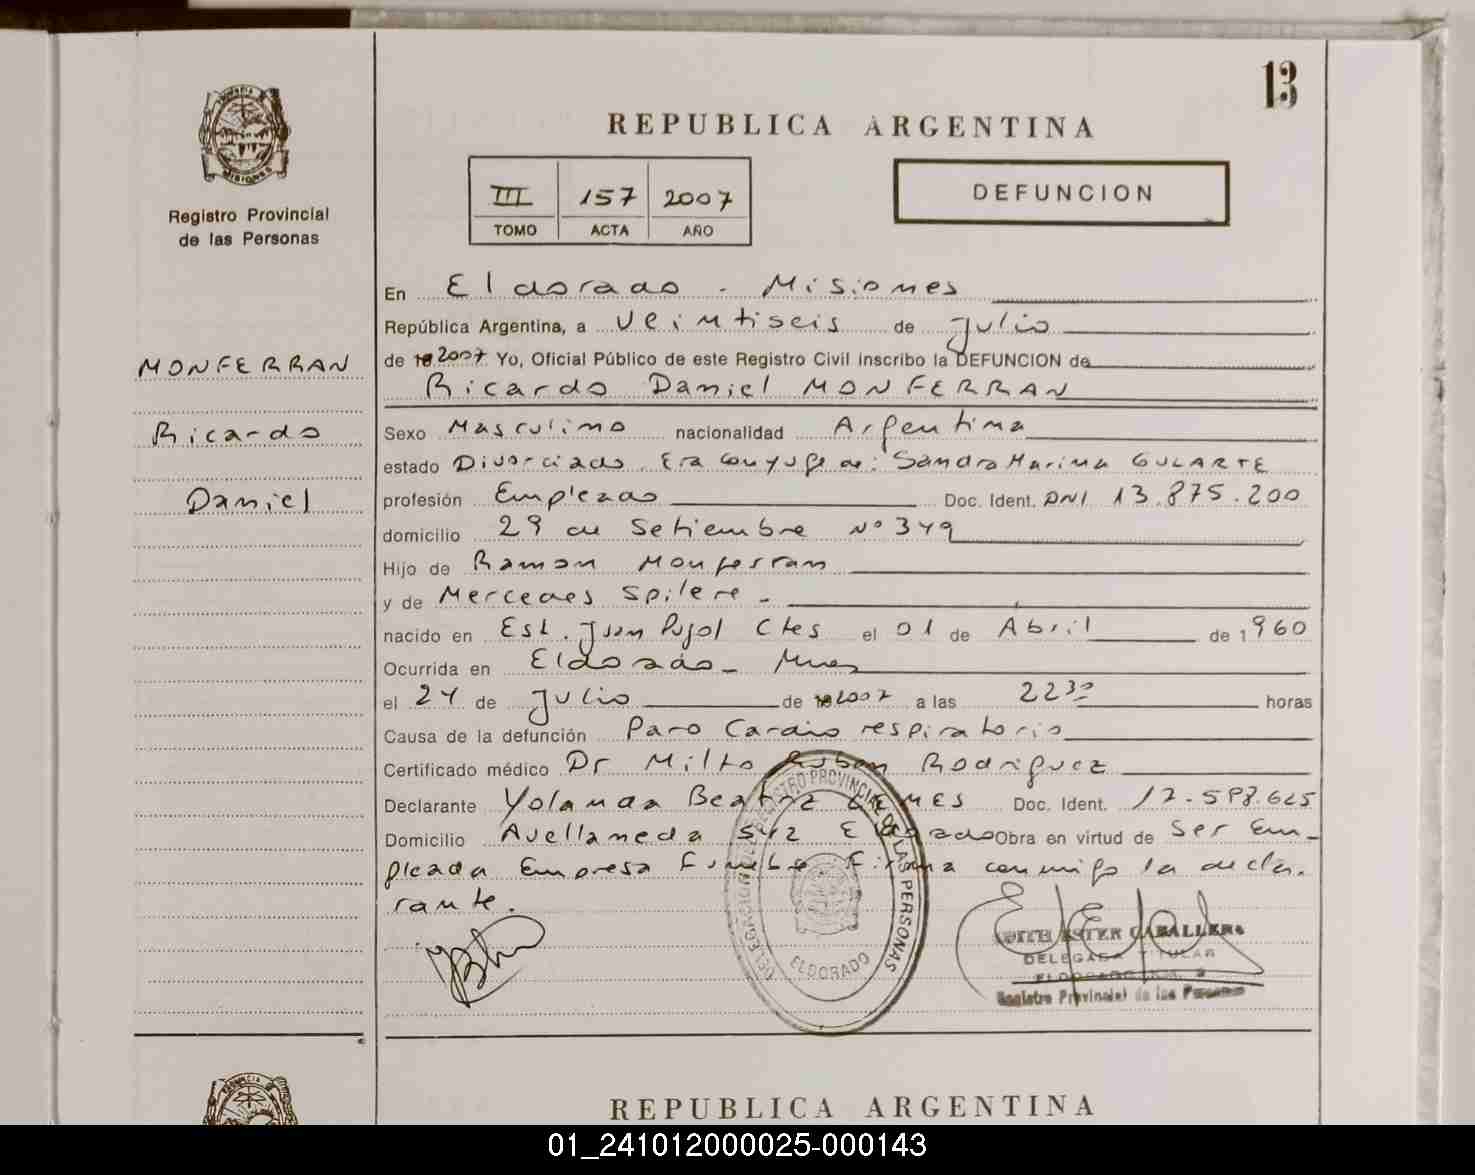 13
REPUBLICA ARGENTINA
III 157 2007
TOMO ACTA AÑO
DEFUNCION
MISIONES
Registro Provincial
de las Personas
MONFERRAN
Ricardo
Daniel
En Eldorado - Misiones
República Argentina, a veintiseis de julio
de 2007 Yo, Oficial Público de este Registro Civil inscribo la DEFUNCION de
Ricardo Daniel MONFERRAN
Sexo Masculino nacionalidad Argentina
estado Divorciado. Era conyuge de: Sandra Marina GULARTE
profesión Empleado Doc. Ident. DNI 13.875.200
domicilio 29 de Setiembre Nº 349
Hijo de Ramon Monferran
y de Mercedes Spilere -
nacido en Est. Juan Pujol Ctes el 01 de Abril de 1960
Ocurrida en Eldorado - Mnes
el 24 de julio de 2007 a las 22 30 horas
Causa de la defunción Paro Cardio respiratorio
Certificado médico Dr Milto Ruben Rodriguez
Declarante Yolanda Beatriz Doc. Ident. 17.598.625
Domicilio Avellaneda 542 Eldorado Obra en virtud de Ser Em-
pleada Empresa Funebre Firma conmigo la decla-
rante.
DELEGACION REGISTRO PROVINCIAL DE LAS PERSONAS
ELDORADO
EDITH ESTER CABALLERO
DELEGADA TITULAR
ELDORADO
Registro Provincial de las Personas
REPUBLICA ARGENTINA
01_241012000025-000143